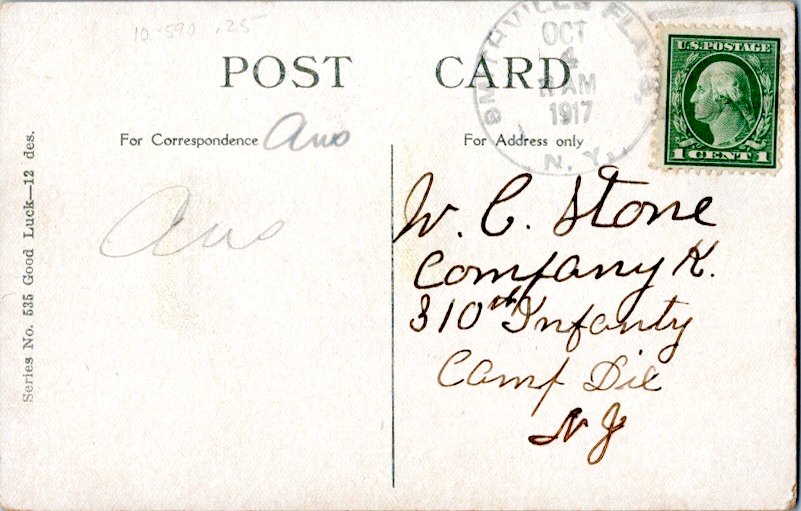 10-590 .25
POST CARD
SMITHVILLE FLATS
OCT
4
AM
1917
N.Y.
U.S.POSTAGE
1 CENT 1
For Correspondence Ans
For Address only
Ans
W. C. Stone
Company K.
310th Infanty
Camp Dix
N J
Series No. 535 Good Luck—12 des.